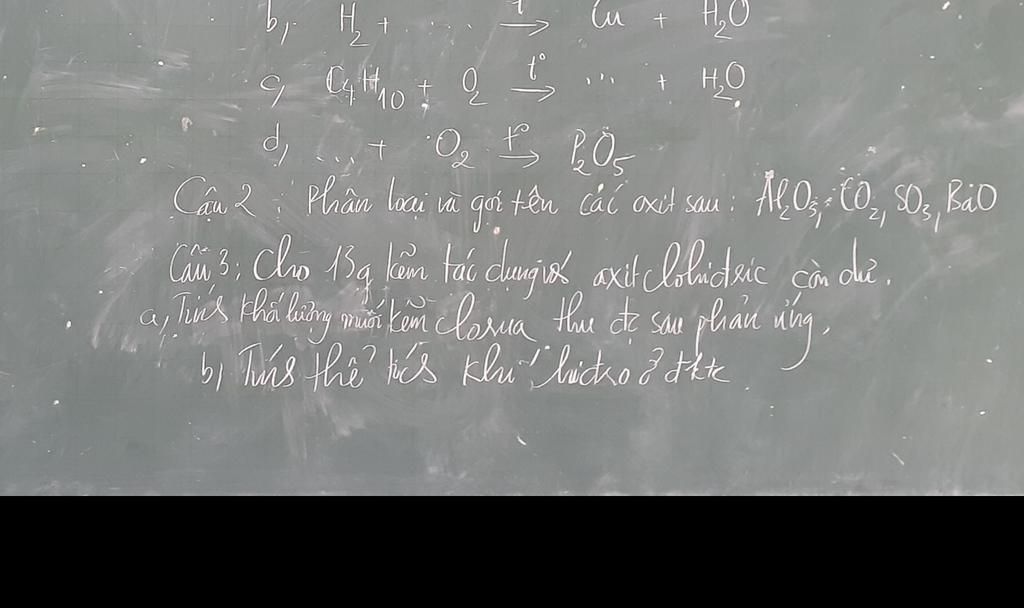 b, H₂ + ... t° → Cu + H₂O
c, C₄H₁₀ + O₂ t° → ... + H₂O
d, ... + O₂ t° → P₂O₅
Câu 2 : Phân loại và gọi tên các oxit sau : Al₂O₃, CO₂, SO₃, BaO
Câu 3 : Cho 13g kẽm tác dụng với axit clohidric còn dư.
a, Tính khối lượng muối kẽm clorua thu đc sau phản ứng.
b, Tính thể tích khí hidro ở đktc